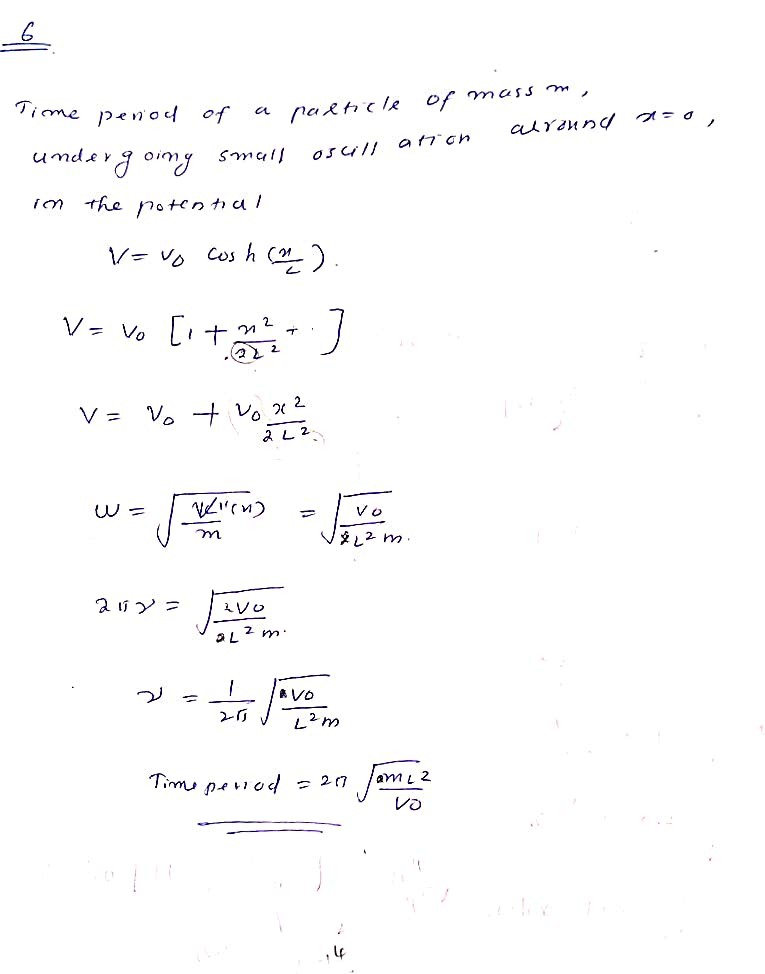 6
Time period of a particle of mass m,
undergoing small oscillation around x=0,
in the potential
V = V0 cosh (x/L).
V = V0 [1 + x²/2L² + . ]
V = V0 + V0 x²/2L².
ω = √(V''(x)/m) = √(V0/L²m).
2πν = √(2V0/2L²m).
ν = 1/2π √(V0/L²m)
Time period = 2π √(mL²/V0)